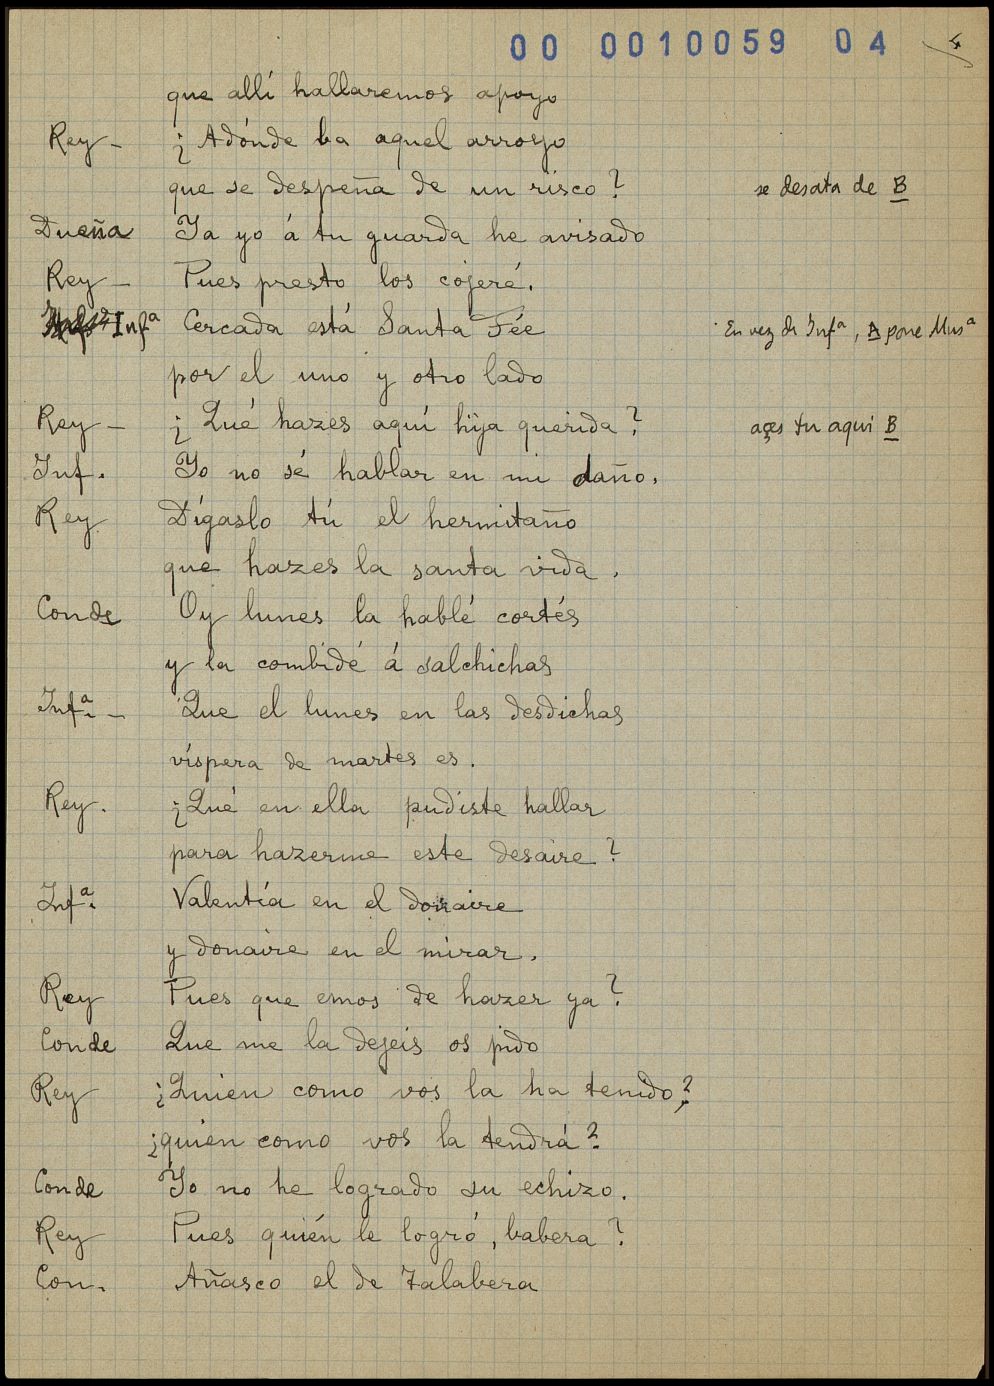 00 0010059 04 4
que allí hallaremos apoyo
Rey - ¿Adónde ba aquel arroyo
que se despeña de un risco? se desata de B
Dueña Ya yo á tu guarda he avisado
Rey - Pues presto los cojeré.
Infª Cercada está Santa Fée En vez de Infª, A pone Musª
por el uno y otro lado
Rey - ¿Qué hazes aquí hija querida? açes tu aqui B
Inf. Yo no sé hablar en mi daño.
Rey Dígaslo tú el hermitaño
que hazes la santa vida.
Conde Oy lunes la hablé cortés
y la combidé á salchichas
Infª. - Que el lunes en las desdichas
víspera de martes es.
Rey. ¿Qué en ella pudiste hallar
para hazerme este desaire?
Infª. Valentía en el donaire
y donaire en el mirar.
Rey Pues que emos de hazer ya?
Conde Que me la dejeis os pido
Rey ¿Quien como vos la ha tenido?
¿quien como vos la tendrá?
Conde Yo no he logrado su echizo.
Rey Pues quién le logró, babera?
Con. Añasco el de Talabera